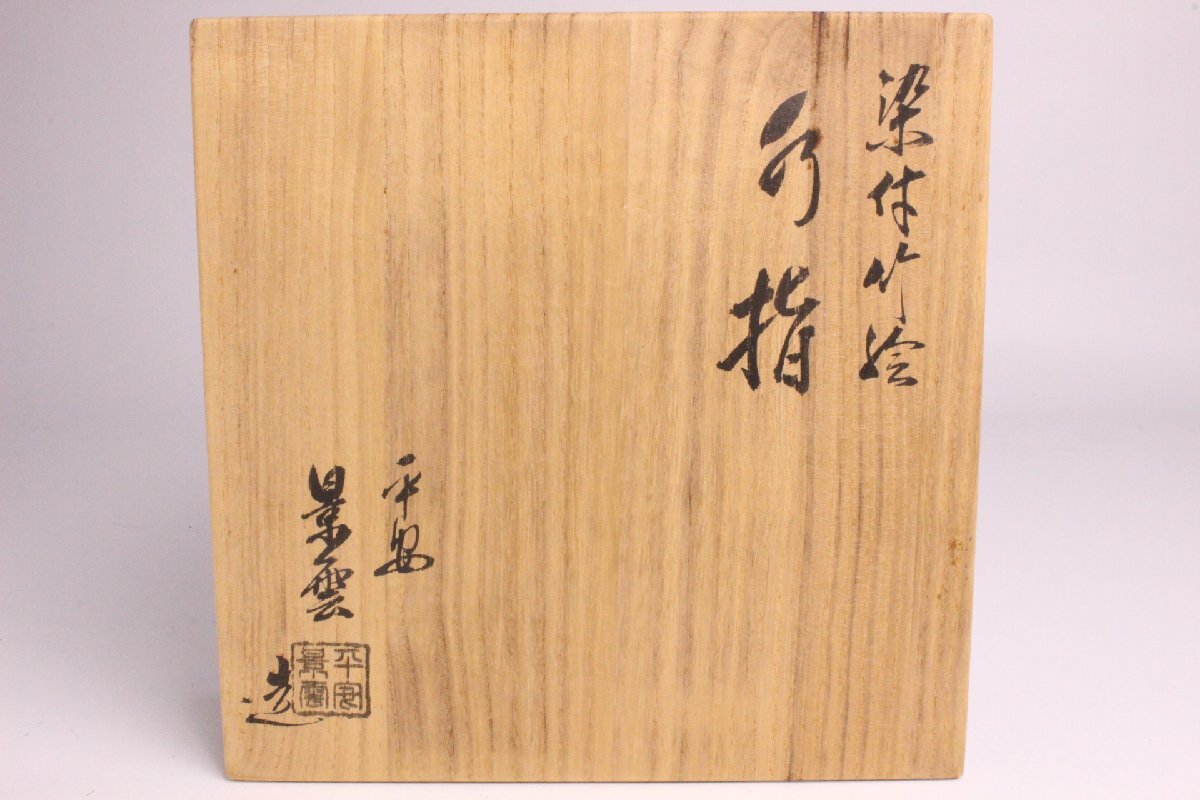 染付竹絵
水指
平安
景雲
造
平安
景雲